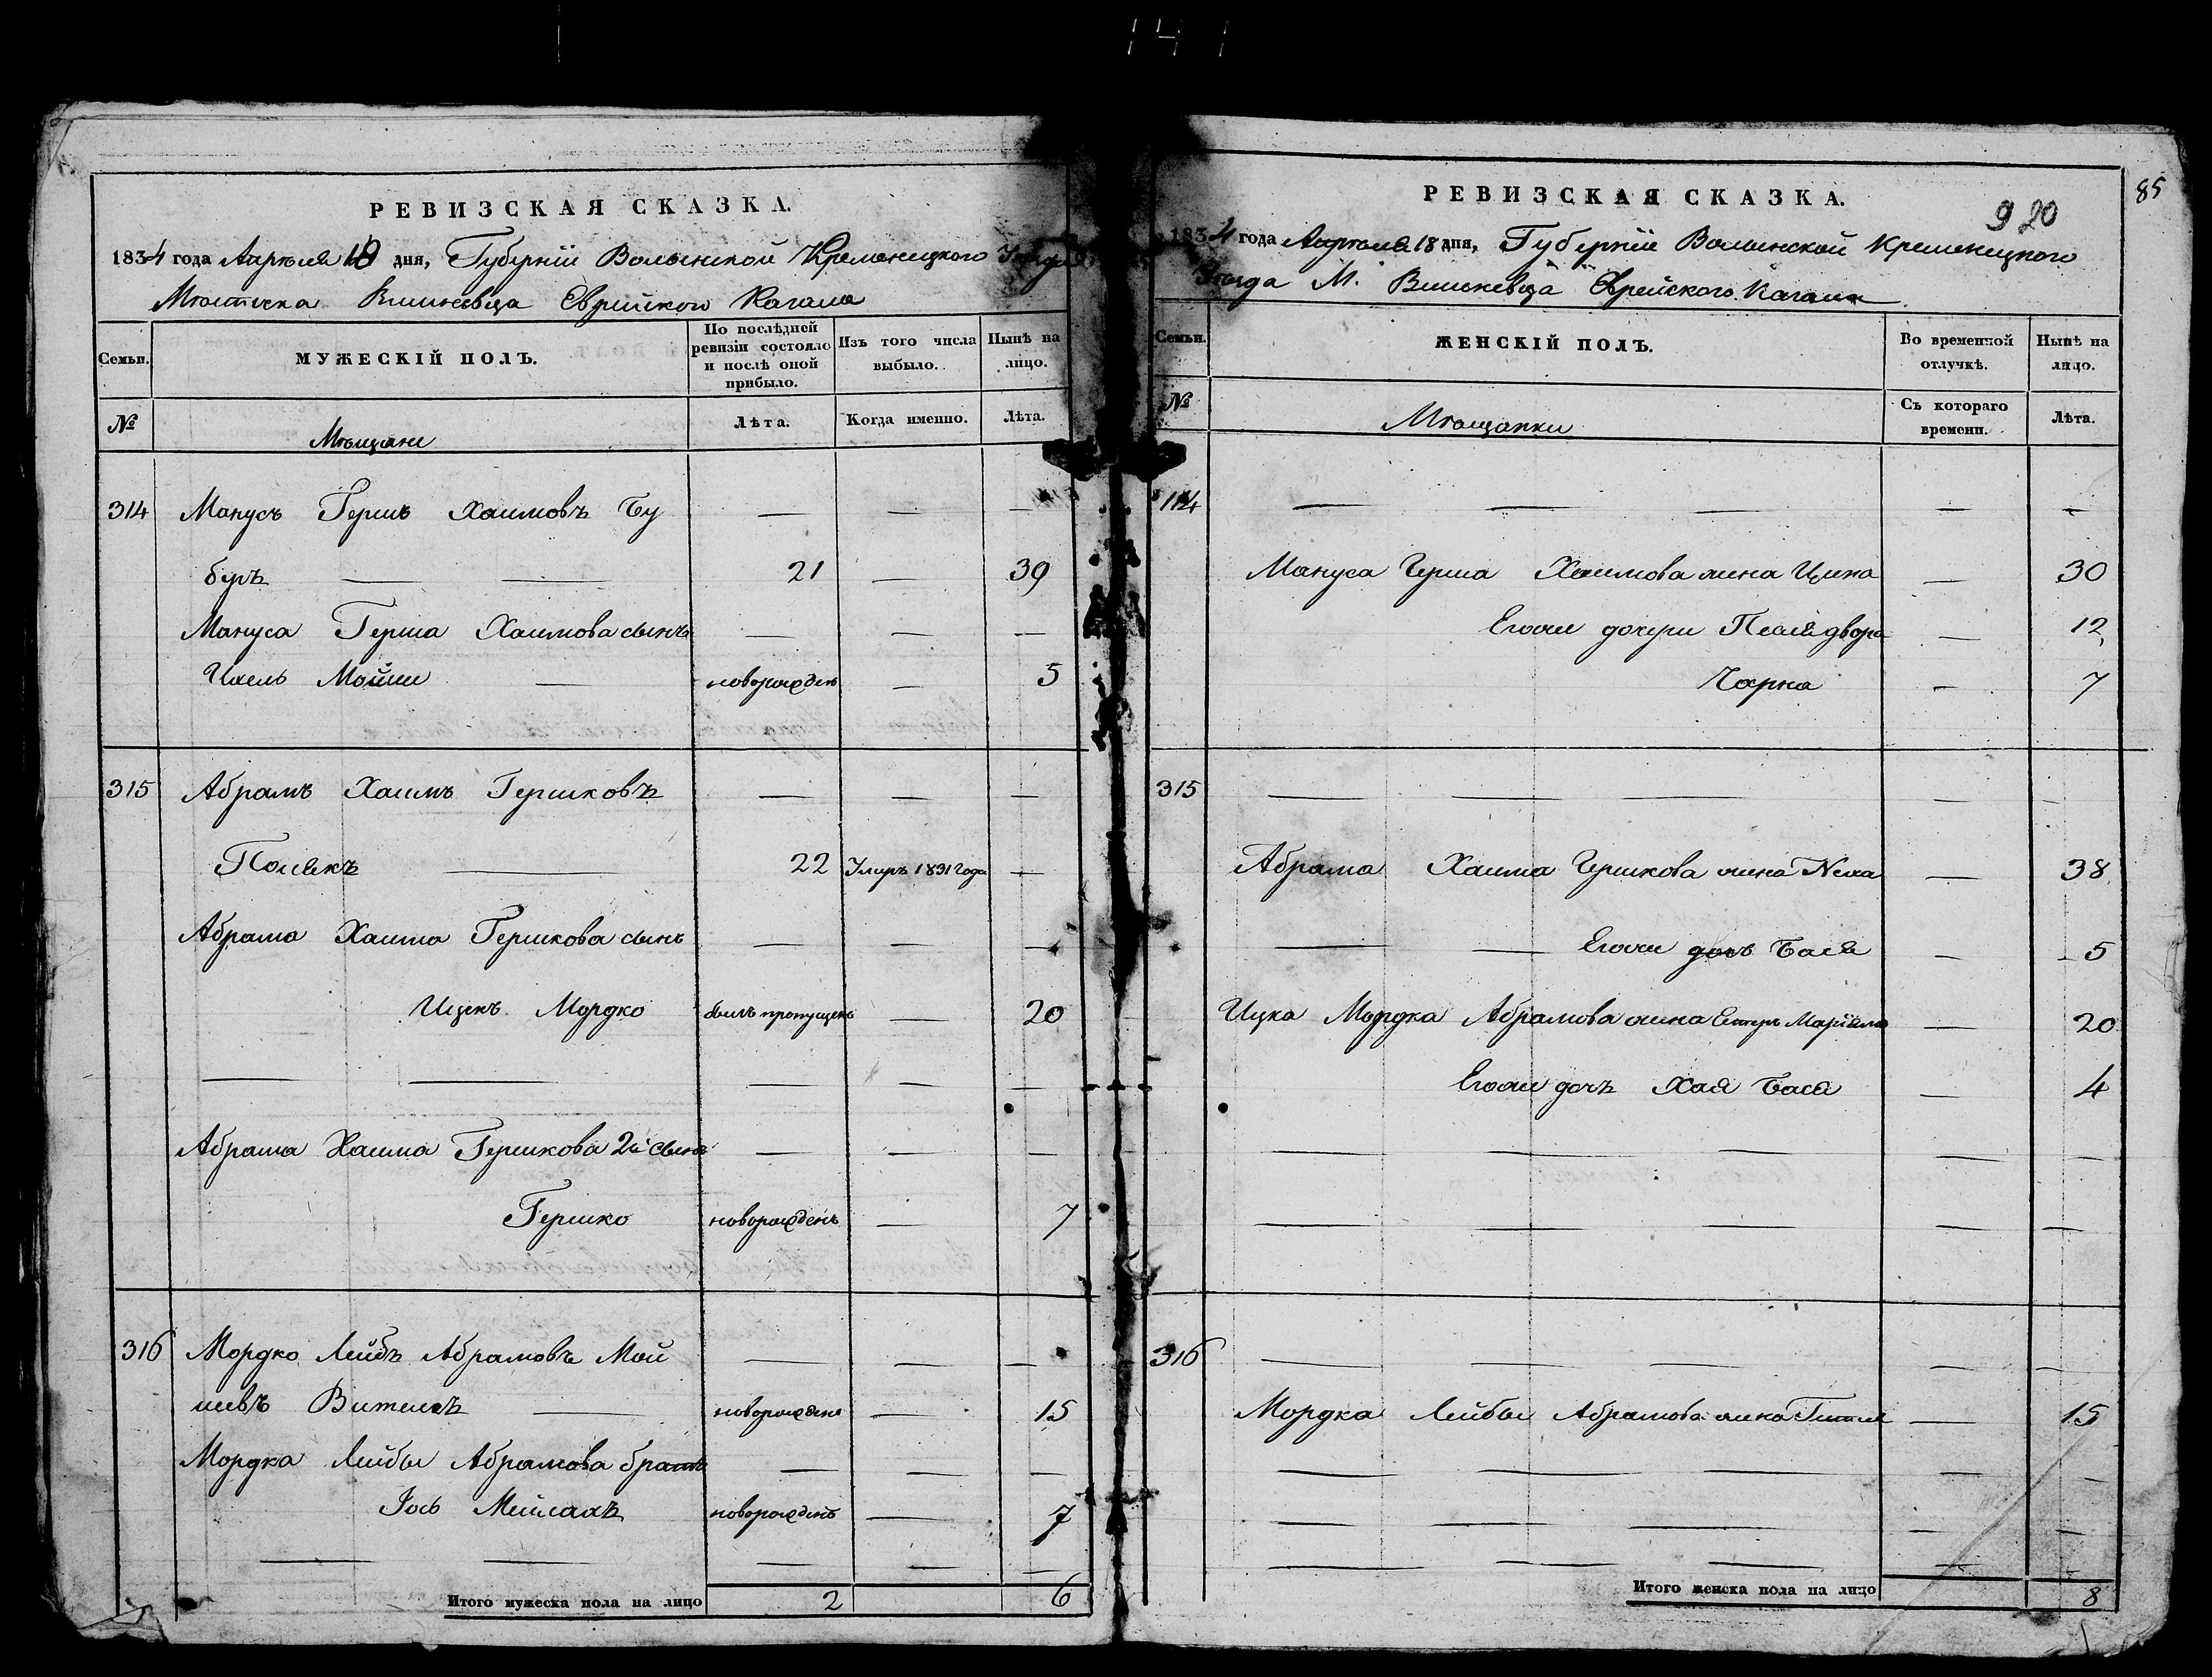 141
РЕВИЗСКАЯ СКАЗКА.
1834 года Апреля 18 дня, Губернiи Волынской Кременецкого Уезда
Местечка Вишневца Еврейского Кагала
Семьи.
МУЖЕСКIЙ ПОЛЪ.
По послѣдней ревизiи состояло и послѣ оной прибыло.
Изъ того числа выбыло.
Нынѣ на лицо.
№
Мещане
Лѣта.
Когда именно.
Лѣта.
314 Манусъ Гершъ Хаимовъ Бу — — —
беръ — — 21 — 39
Мануса Герша Хаимова сынъ — — —
Ихель Мошии — новорожденъ — 5
315 Абрамъ Хаимъ Гершковъ — — —
Полякъ — 22 Умеръ 1831 года —
Абрама Хаима Гершкова сынъ — — —
Ицекъ Мордко былъ пропущенъ — 20
— — — — —
Абрама Хаима Гершкова 2й сынъ — — —
Гершко новорожденъ — 7
316 Мордко Лейбъ Абрамовъ Мой — — —
шевъ Вительсъ — новорожденъ — 15
Мордка Лейбы Абрамова братъ — — —
Iось новорожденъ — 7
— — — — —
Итого мужеска пола на лицо 2 6
85
920
РЕВИЗСКАЯ СКАЗКА.
1834 года Апреля 18 дня, Губернiи Волынской Кременецкого
Уезда М. Вишневца Еврейского Кагала
Семьи.
ЖЕНСКIЙ ПОЛЪ.
Во временной отлучкѣ.
Нынѣ на лицо.
№
Мещанки
Съ котораго времени.
Лѣта.
314 — — — — —
Мануса Герша Хаимова жена Цина — 30
Егоже дочери Песя двора — 12
Чарна — 7
315 — — — — —
Абрама Хаима Гершкова жена Неха — 38
— — Егоже дочь Бася — 5
Ицка Мордка Абрамова жена Естеръ Марiяма — 20
Егоже дочь Хая Бася — 4
— — — — —
— — — — —
316 — — — — —
Мордка Лейбы Абрамова жена Гитля — 15
— — — — —
— — — — —
— — — — —
Итого женска пола на лицо 8